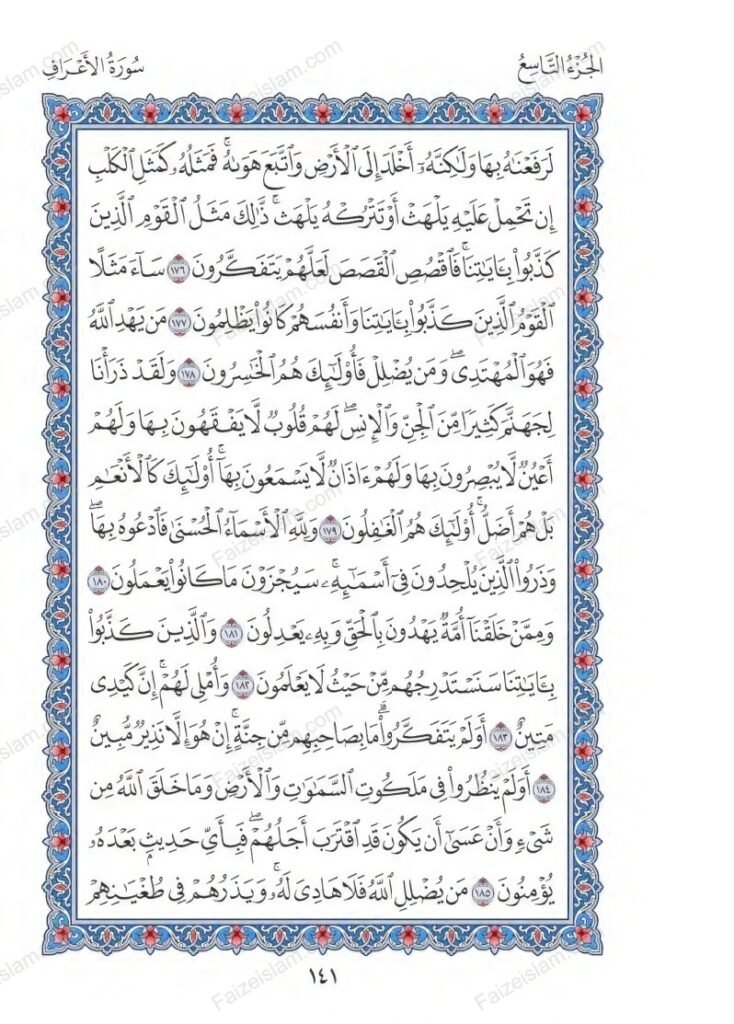 الجُزْءُ التَّاسِعُ
سُورَةُ الأَعْرَافِ
لَرَفَعْنَٰهُ بِهَا وَلَٰكِنَّهُۥٓ أَخْلَدَ إِلَى ٱلْأَرْضِ وَٱتَّبَعَ هَوَىٰهُ ۚ فَمَثَلُهُۥ كَمَثَلِ ٱلْكَلْبِ
إِن تَحْمِلْ عَلَيْهِ يَلْهَثْ أَوْ تَتْرُكْهُ يَلْهَث ۚ ذَّٰلِكَ مَثَلُ ٱلْقَوْمِ ٱلَّذِينَ
كَذَّبُوا۟ بِـَٔايَٰتِنَا ۚ فَٱقْصُصِ ٱلْقَصَصَ لَعَلَّهُمْ يَتَفَكَّرُونَ ١٧٦ سَآءَ مَثَلًا
ٱلْقَوْمُ ٱلَّذِينَ كَذَّبُوا۟ بِـَٔايَٰتِنَا وَأَنفُسَهُمْ كَانُوا۟ يَظْلِمُونَ ١٧٧ مَن يَهْدِ ٱللَّهُ
فَهُوَ ٱلْمُهْتَدِى ۖ وَمَن يُضْلِلْ فَأُو۟لَٰٓئِكَ هُمُ ٱلْخَٰسِرُونَ ١٧٨ وَلَقَدْ ذَرَأْنَا
لِجَهَنَّمَ كَثِيرًا مِّنَ ٱلْجِنِّ وَٱلْإِنسِ ۖ لَهُمْ قُلُوبٌ لَّا يَفْقَهُونَ بِهَا وَلَهُمْ
أَعْيُنٌ لَّا يُبْصِرُونَ بِهَا وَلَهُمْ ءَاذَانٌ لَّا يَسْمَعُونَ بِهَآ ۚ أُو۟لَٰٓئِكَ كَٱلْأَنْعَٰمِ
بَلْ هُمْ أَضَلُّ ۚ أُو۟لَٰٓئِكَ هُمُ ٱلْغَٰفِلُونَ ١٧٩ وَلِلَّهِ ٱلْأَسْمَآءُ ٱلْحُسْنَىٰ فَٱدْعُوهُ بِهَا ۖ
وَذَرُوا۟ ٱلَّذِينَ يُلْحِدُونَ فِىٓ أَسْمَٰٓئِهِۦ ۚ سَيُجْزَوْنَ مَا كَانُوا۟ يَعْمَلُونَ ١٨٠
وَمِمَّنْ خَلَقْنَآ أُمَّةٌ يَهْدُونَ بِٱلْحَقِّ وَبِهِۦ يَعْدِلُونَ ١٨١ وَٱلَّذِينَ كَذَّبُوا۟
بِـَٔايَٰتِنَا سَنَسْتَدْرِجُهُم مِّنْ حَيْثُ لَا يَعْلَمُونَ ١٨٢ وَأُمْلِى لَهُمْ ۚ إِنَّ كَيْدِى
مَتِينٌ ١٨٣ أَوَلَمْ يَتَفَكَّرُوا۟ ۗ مَا بِصَاحِبِهِم مِّن جِنَّةٍ ۚ إِنْ هُوَ إِلَّا نَذِيرٌ مُّبِينٌ
١٨٤ أَوَلَمْ يَنظُرُوا۟ فِى مَلَكُوتِ ٱلسَّمَٰوَٰتِ وَٱلْأَرْضِ وَمَا خَلَقَ ٱللَّهُ مِن
شَىْءٍ وَأَنْ عَسَىٰٓ أَن يَكُونَ قَدِ ٱقْتَرَبَ أَجَلُهُمْ ۖ فَبِأَىِّ حَدِيثٍۭ بَعْدَهُۥ
يُؤْمِنُونَ ١٨٥ مَن يُضْلِلِ ٱللَّهُ فَلَا هَادِىَ لَهُۥ ۚ وَيَذَرُهُمْ فِى طُغْيَٰنِهِمْ
١٤١
Faizeislam.com